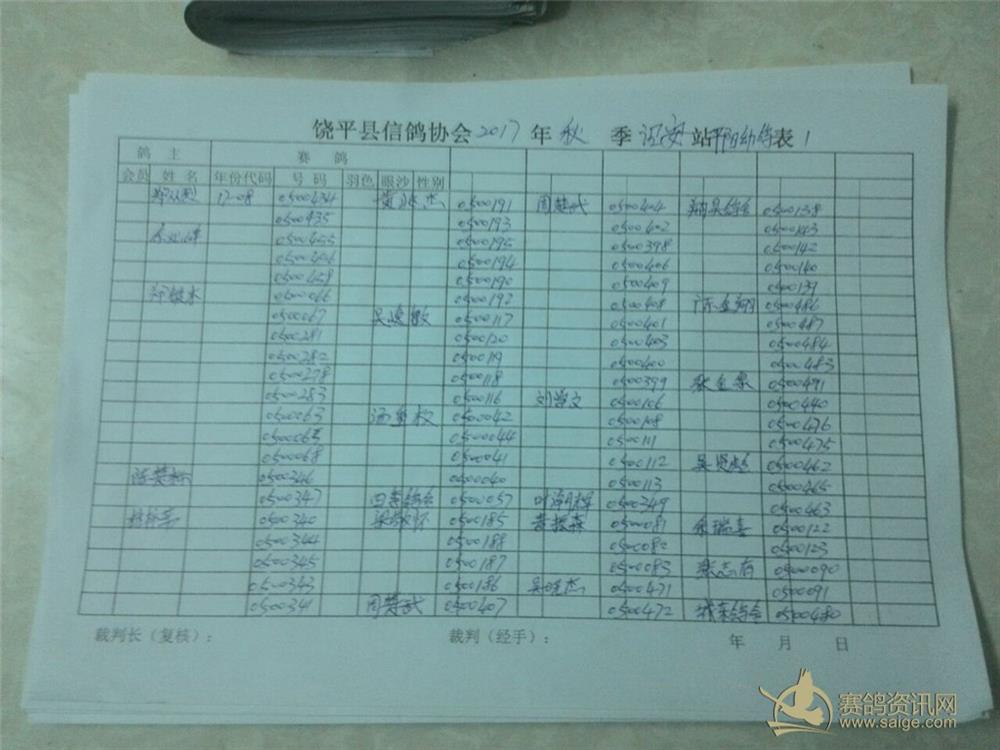 饶平县信鸽协会2017年秋季诏安站 表1
鸽主 赛鸽
会员 姓名 年份代码 号码 羽色 眼沙 性别
17-08 0500434 0500191 周楚武 0500404 0500138
0500435 0500193 0500402 0500143
0500455 0500195 0500398 0500142
0500456 0500194 0500406 0500140
0500458 0500190 0500409 0500139
0500066 0500192 0500408 陈益翔 0500486
0500067 0500117 0500401 0500487
0500281 0500120 0500403 0500484
0500282 0500119 0500400 0500483
0500278 0500118 0500399 0500491
0500283 0500116 0500106 0500440
0500063 0500042 0500108 0500476
0500065 0500044 0500111 0500475
0500068 0500041 0500112 0500462
0500346 0500040 0500113 0500465
0500347 0500057 0500349 0500463
0500340 0500185 黄振森 0500081 余瑞喜 0500122
0500344 0500188 0500082 0500123
0500345 0500187 0500083 张志有 0500090
0500343 0500186 0500471 0500091
0500341 周楚武 0500407 0500472 0500480
裁判长（复核）： 裁判（经手）： 年 月 日
赛鸽资讯网
www.saige.com